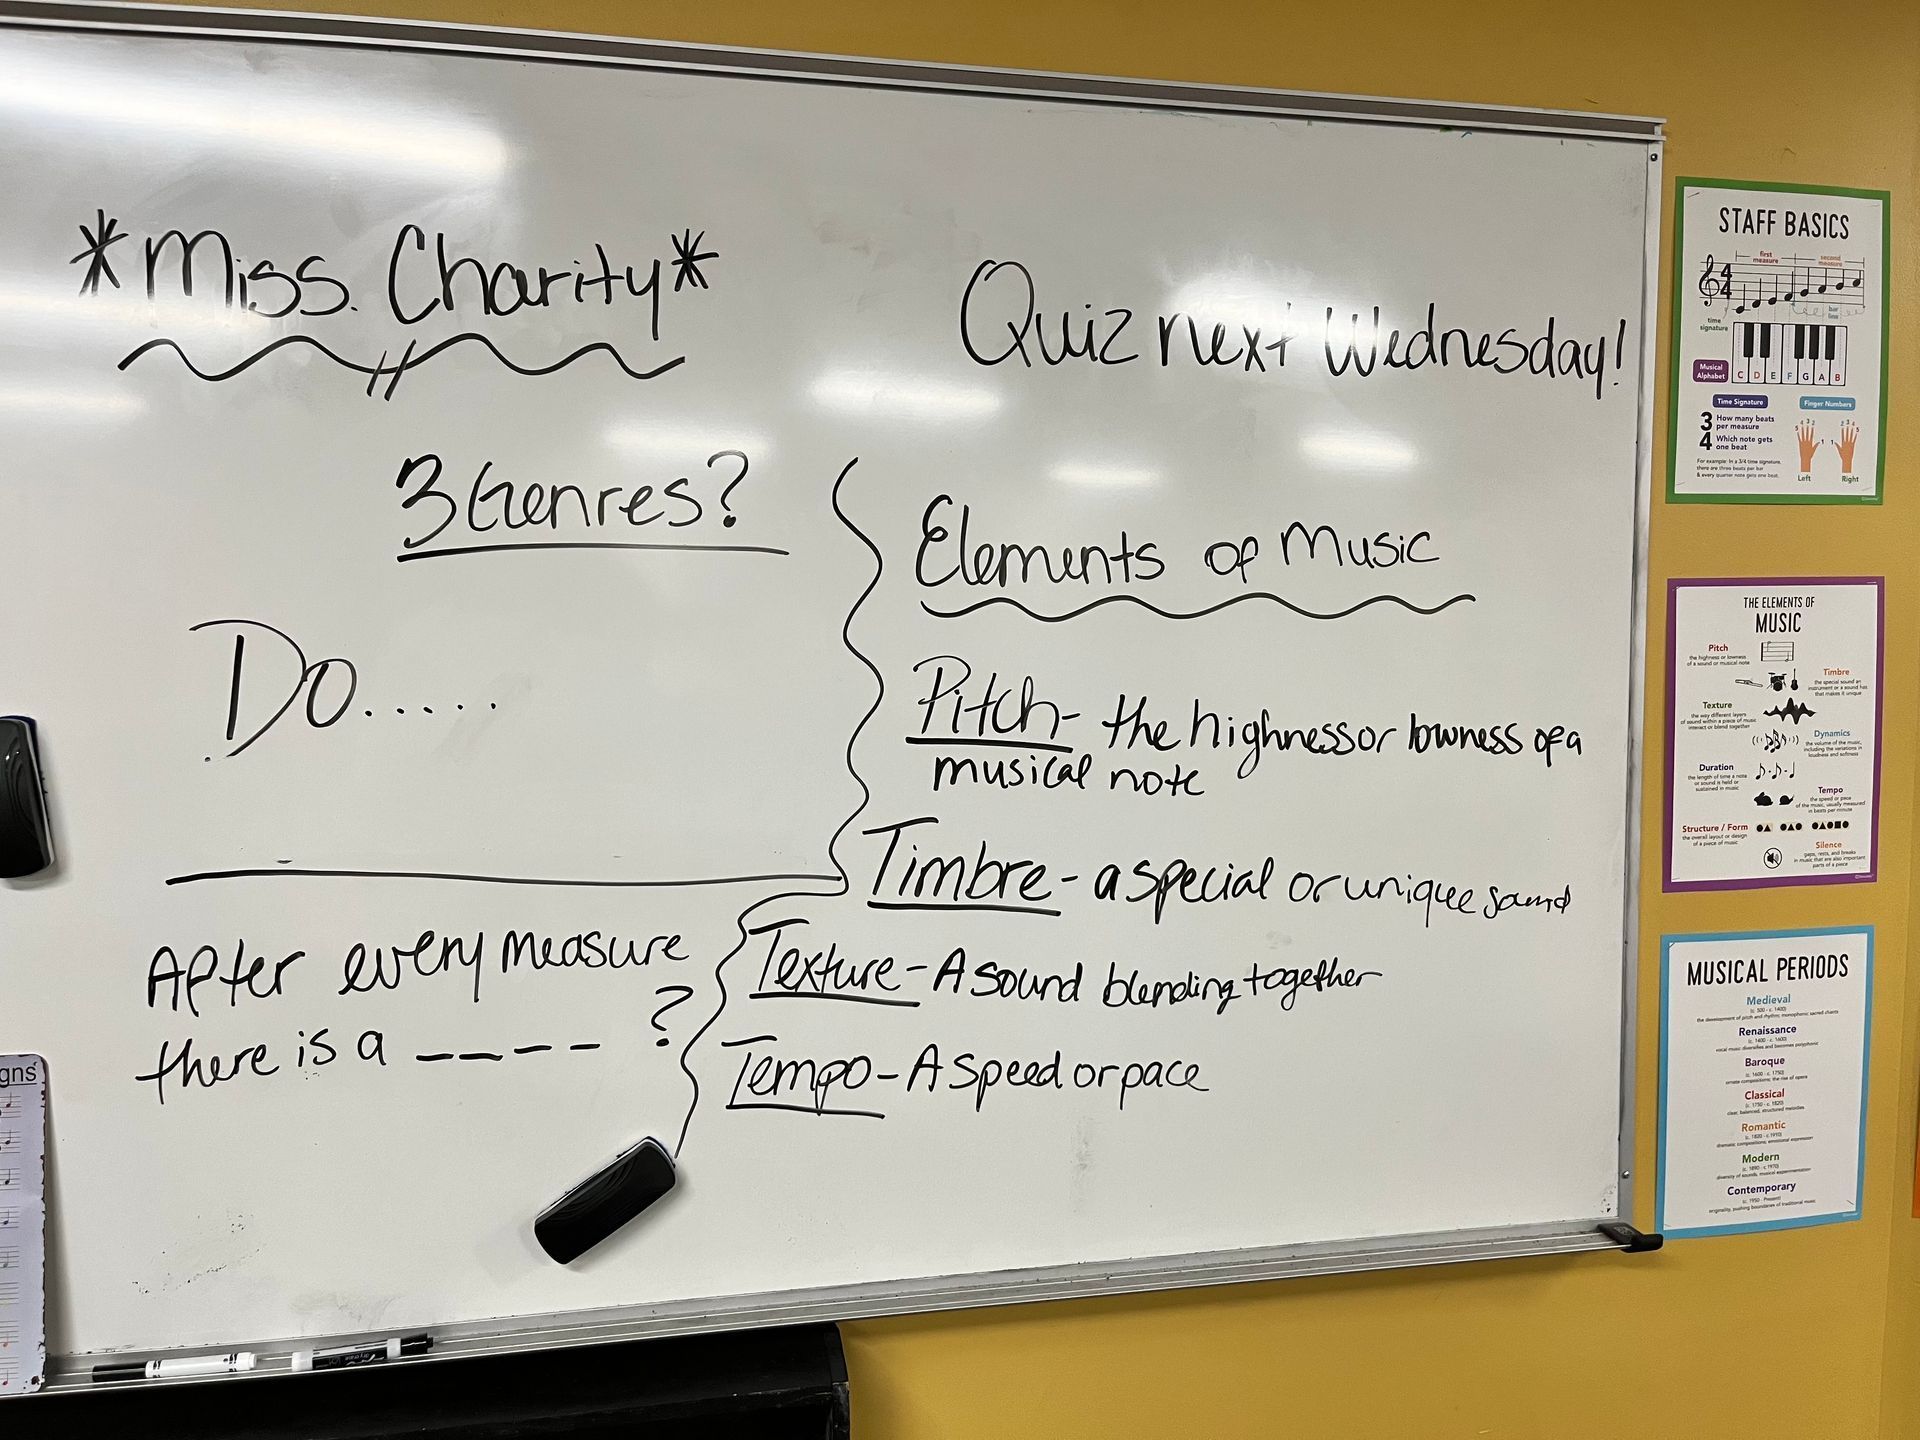 *Miss. Charity*
Quiz next Wednesday!
3 Genres?
Do.....
After every measure
there is a ____ ?
Elements of Music
Pitch- the highness or lowness of a
musical note
Timbre- a special or unique sound
Texture- A sound blending together
Tempo- A speed or pace
STAFF BASICS
first
measure
second
measure
4
4
time
signature
bar
line
Musical
Alphabet
C D E F G A B
Time Signature
3 How many beats
per measure
4 Which note gets
one beat
For example: In a 3/4 time signature,
there are three beats per bar
& every quarter note gets one beat.
Finger Numbers
5 4 3 2 1
1 2 3 4 5
Left
Right
THE ELEMENTS OF
MUSIC
Pitch
the highness or lowness
of a sound or musical note
Timbre
the special sound an
instrument or a sound has
that makes it unique
Texture
the way different layers
of sound within a piece of music
interact or blend together
Dynamics
the volume of the music,
including the variations in
loudness and softness
Duration
the length of time a note
or sound is held or
sustained in music
Tempo
the speed or pace
of the music, usually measured
in beats per minute
Structure / Form
the overall layout or design
of a piece of music
Silence
gaps, rests, and breaks
in music that are also important
parts of a piece
MUSICAL PERIODS
Medieval
(c. 500 - c. 1400)
the development of pitch and rhythm; monophonic sacred chants
Renaissance
(c. 1400 - c. 1600)
vocal music diversifies and becomes polyphonic
Baroque
(c. 1600 - c. 1750)
ornate compositions; the rise of opera
Classical
(c. 1750 - c. 1820)
clear, balanced, structured melodies
Romantic
(c. 1820 - c. 1910)
dramatic compositions; emotional expression
Modern
(c. 1890 - c 1970)
diversity of sounds, musical experimentation
Contemporary
(c. 1950 - Present)
originality, pushing boundaries of traditional music
gns